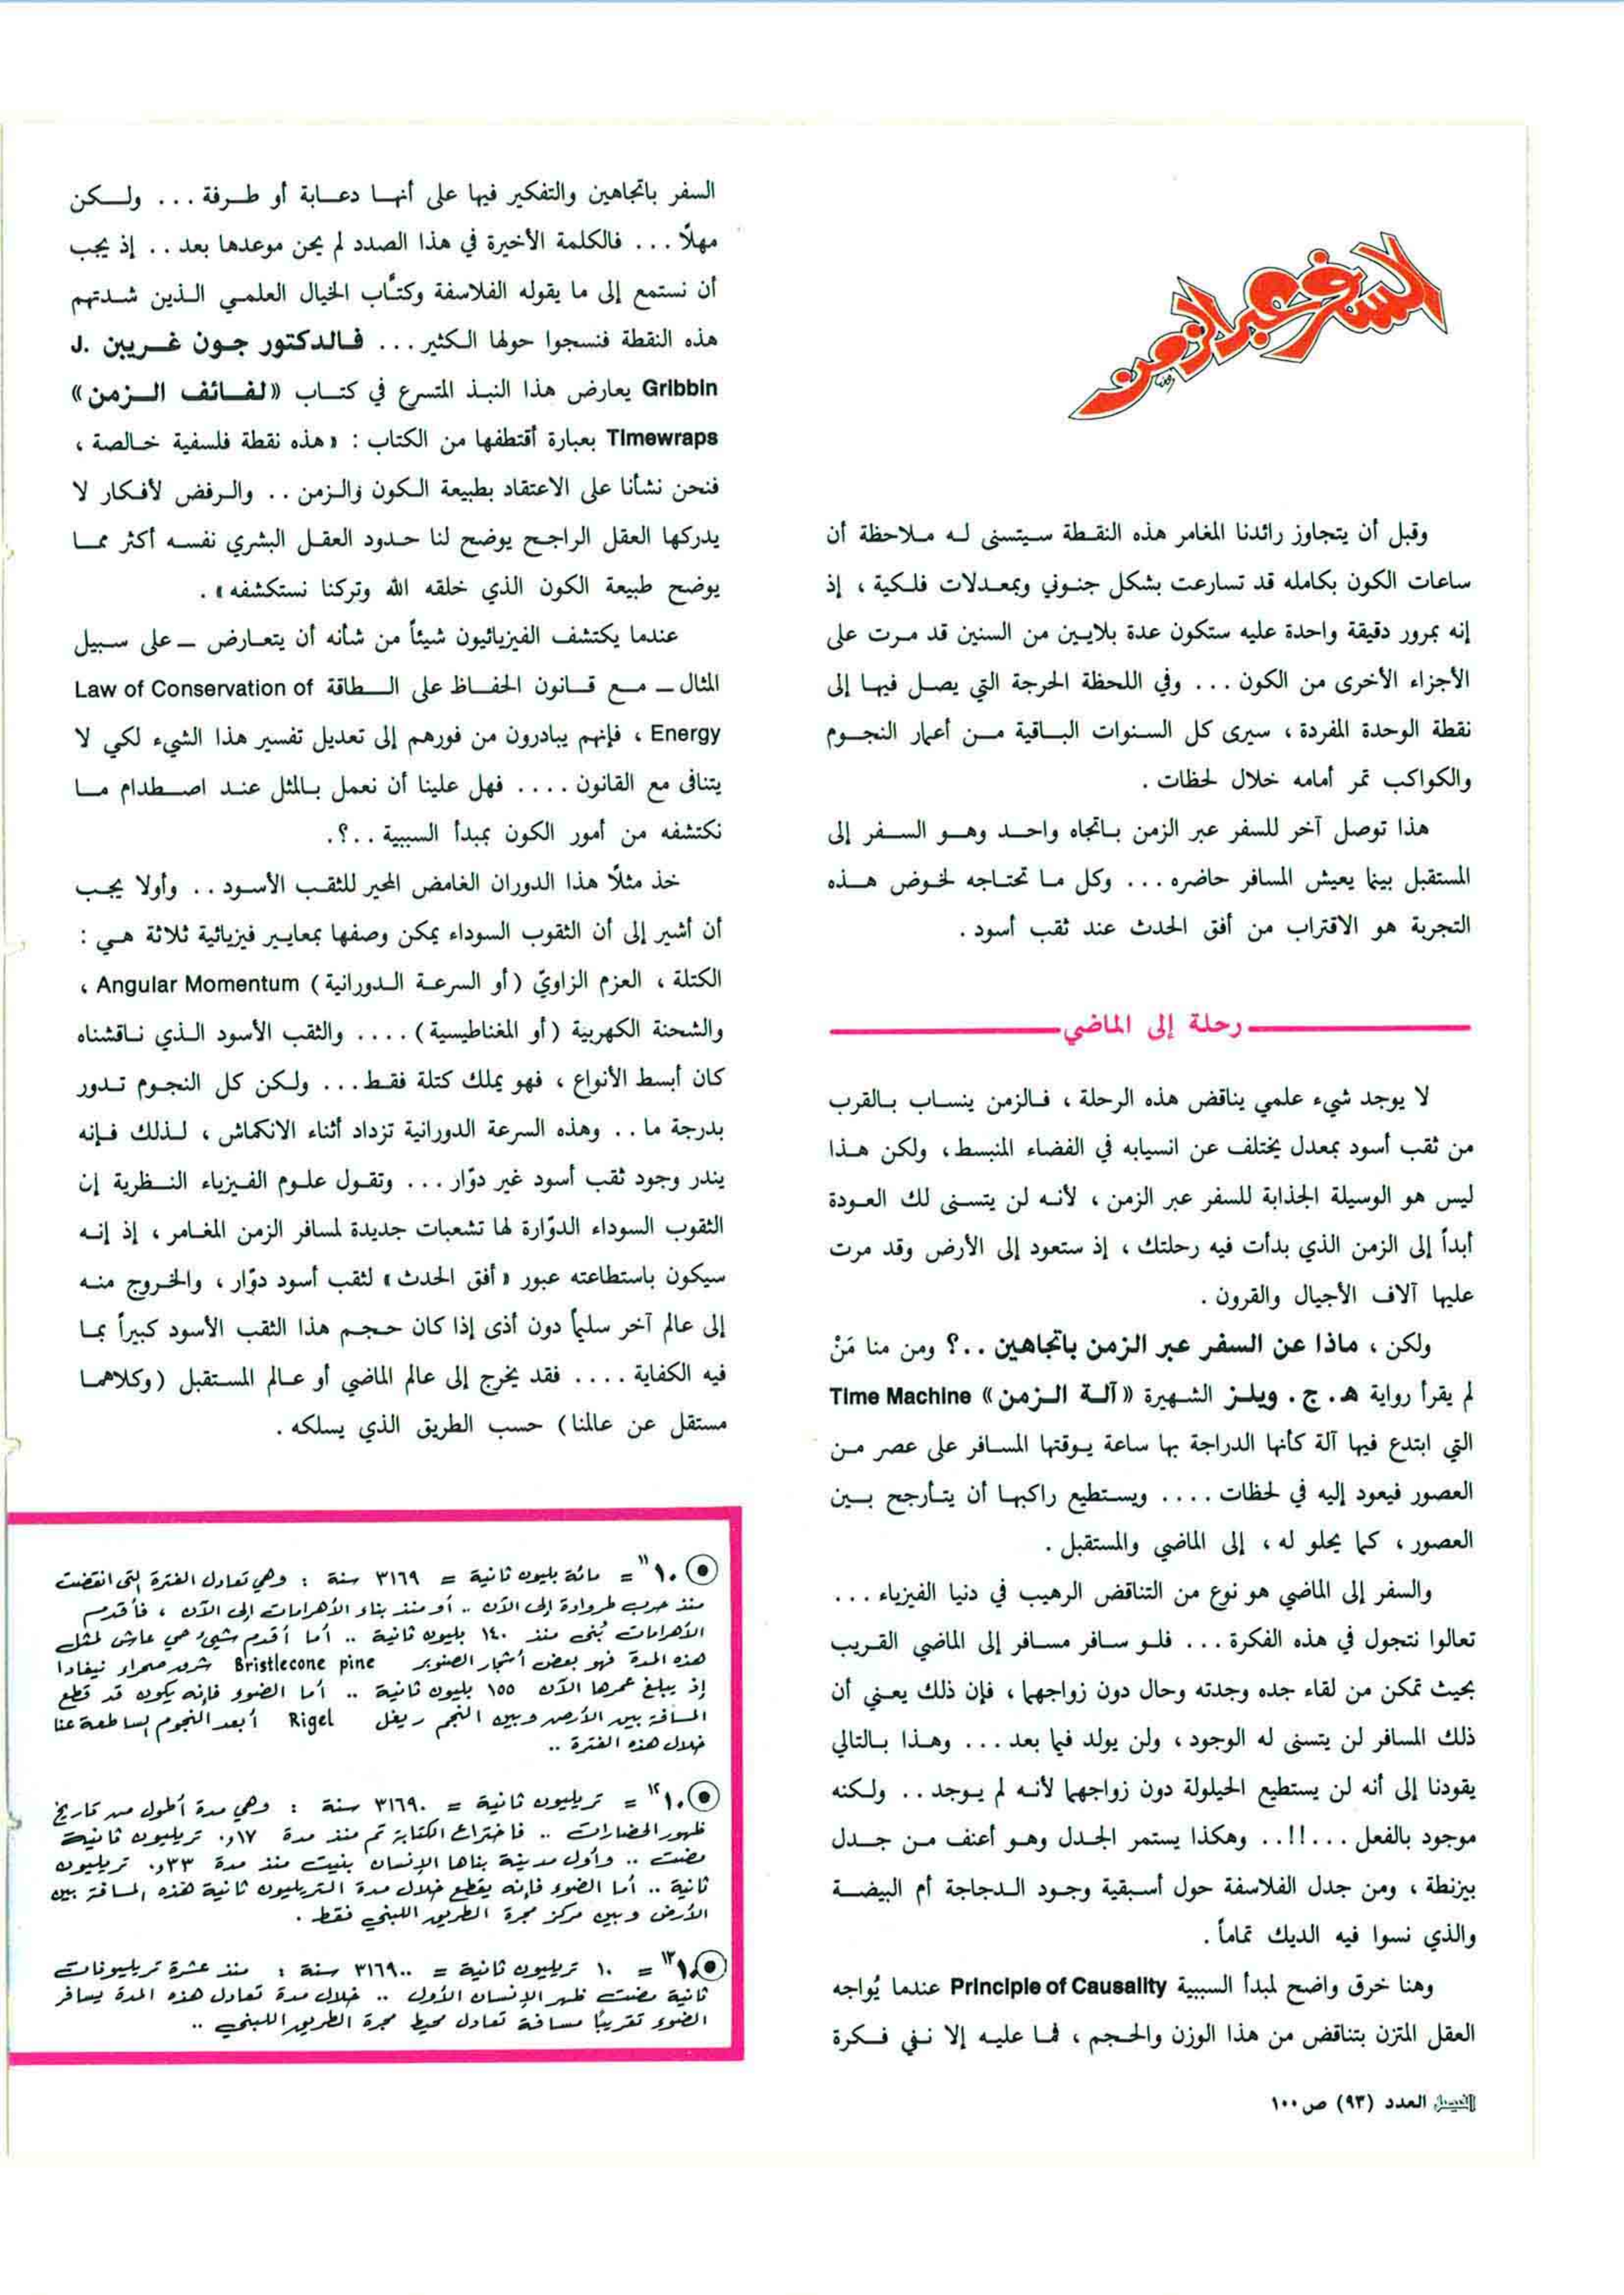 السفر عبر الزمن
وقبل أن يتجاوز رائدنا المغامر هذه النقطة سيتسنى له ملاحظة أن
ساعات الكون بكامله قد تسارعت بشكل جنوني وبمعدلات فلكية ، إذ
إنه بمرور دقيقة واحدة عليه ستكون عدة بلايين من السنين قد مرت على
الأجزاء الأخرى من الكون ... وفي اللحظة الحرجة التي يصل فيها إلى
نقطة الوحدة المفردة ، سيرى كل السنوات الباقية من أعمار النجوم
والكواكب تمر أمامه خلال لحظات .
هذا توصل آخر للسفر عبر الزمن باتجاه واحد وهو السفر إلى
المستقبل بينما يعيش المسافر حاضره ... وكل ما تحتاجه لخوض هذه
التجربة هو الاقتراب من أفق الحدث عند ثقب أسود .
رحلة إلى الماضي
لا يوجد شيء علمي يناقض هذه الرحلة ، فالزمن ينساب بالقرب
من ثقب أسود بمعدل يختلف عن انسيابه في الفضاء المنبسط ، ولكن هذا
ليس هو الوسيلة الجذابة للسفر عبر الزمن ، لأنه لن يتسنى لك العودة
أبداً إلى الزمن الذي بدأت فيه رحلتك ، إذ ستعود إلى الأرض وقد مرت
عليها آلاف الأجيال والقرون .
ولكن ، ماذا عن السفر عبر الزمن باتجاهين ..؟ ومن منا مَنْ
لم يقرأ رواية هـ . ج . ويلز الشهيرة «آلة الزمن» Time Machine
التي ابتدع فيها آلة كأنها الدراجة بها ساعة يوقتها المسافر على عصر من
العصور فيعود إليه في لحظات .... ويستطيع راكبها أن يتأرجح بين
العصور ، كما يحلو له ، إلى الماضي والمستقبل .
والسفر إلى الماضي هو نوع من التناقض الرهيب في دنيا الفيزياء ...
تعالوا نتجول في هذه الفكرة ... فلو سافر مسافر إلى الماضي القريب
بحيث تمكن من لقاء جده وجدته وحال دون زواجهما ، فإن ذلك يعني أن
ذلك المسافر لن يتسنى له الوجود ، ولن يولد فيما بعد ... وهذا بالتالي
يقودنا إلى أنه لن يستطيع الحيلولة دون زواجهما لأنه لم يوجد .. ولكنه
موجود بالفعل ...!!.. وهكذا يستمر الجدل وهو أعنف من جدل
بيزنطة ، ومن جدل الفلاسفة حول أسبقية وجود الدجاجة أم البيضة
والذي نسوا فيه الديك تماماً .
وهنا خرق واضح لمبدأ السببية Principle of Causality عندما يُواجه
العقل المتزن بتناقض من هذا الوزن والحجم ، فما عليه إلا نفي فكرة
السفر باتجاهين والتفكير فيها على أنها دعابة أو طرفة ... ولكن
مهلًا ... فالكلمة الأخيرة في هذا الصدد لم يحن موعدها بعد .. إذ يجب
أن نستمع إلى ما يقوله الفلاسفة وكتَّاب الخيال العلمي الذين شدتهم
هذه النقطة فنسجوا حولها الكثير ... فالدكتور جون غريبن J.
Gribbin يعارض هذا النبذ المتسرع في كتاب «لفائف الزمن»
Timewraps بعبارة أقتطفها من الكتاب : «هذه نقطة فلسفية خالصة ،
فنحن نشأنا على الاعتقاد بطبيعة الكون والزمن .. والرفض لأفكار لا
يدركها العقل الراجح يوضح لنا حدود العقل البشري نفسه أكثر مما
يوضح طبيعة الكون الذي خلقه الله وتركنا نستكشفه» .
عندما يكتشف الفيزيائيون شيئاً من شأنه أن يتعارض ــ على سبيل
المثال ــ مع قانون الحفاظ على الطاقة Law of Conservation of
Energy ، فإنهم يبادرون من فورهم إلى تعديل تفسير هذا الشيء لكي لا
يتنافى مع القانون .... فهل علينا أن نعمل بالمثل عند اصطدام ما
نكتشفه من أمور الكون بمبدأ السببية ..؟.
خذ مثلًا هذا الدوران الغامض المحير للثقب الأسود .. وأولا يجب
أن أشير إلى أن الثقوب السوداء يمكن وصفها بمعايير فيزيائية ثلاثة هي :
الكتلة ، العزم الزاويّ (أو السرعة الدورانية) Angular Momentum ،
والشحنة الكهربية (أو المغناطيسية) .... والثقب الأسود الذي ناقشناه
كان أبسط الأنواع ، فهو يملك كتلة فقط ... ولكن كل النجوم تدور
بدرجة ما .. وهذه السرعة الدورانية تزداد أثناء الانكماش ، لذلك فإنه
يندر وجود ثقب أسود غير دوّار ... وتقول علوم الفيزياء النظرية إن
الثقوب السوداء الدوّارة لها تشعبات جديدة لمسافر الزمن المغامر ، إذ إنه
سيكون باستطاعته عبور «أفق الحدث» لثقب أسود دوّار ، والخروج منه
إلى عالم آخر سليماً دون أذى إذا كان حجم هذا الثقب الأسود كبيراً بما
فيه الكفاية .... فقد يخرج إلى عالم الماضي أو عالم المستقبل (وكلاهما
مستقل عن عالمنا) حسب الطريق الذي يسلكه .
١٠¹¹ = مائة بليون ثانية = ٣١٦٩ سنة : وهي تعادل الفترة التي انقضت
منذ حرب طروادة إلى الآن .. أو منذ بناء الأهرامات إلى الآن ، فأقدم
الأهرامات بُني منذ ١٤٠ بليون ثانية .. أما أقدم شيء حي عاش لمثل
هذه المدة فهو بعض أشجار الصنوبر Bristlecone pine شرق صحراء نيفادا
إذ يبلغ عمرها الآن ١٥٥ بليون ثانية .. أما الضوء فإنه يكون قد قطع
المسافة بين الأرض وبين النجم ريغل Rigel أبعد النجوم الساطعة عنا
خلال هذه الفترة ..
١٠¹² = تريليون ثانية = ٣١٦٩٠ سنة : وهي مدة أطول من تاريخ
ظهور الحضارات .. فاختراع الكتابة تم منذ مدة ٠,١٧ تريليون ثانية
مضت .. وأول مدينة بناها الإنسان بنيت منذ مدة ٠,٣٣ تريليون
ثانية .. أما الضوء فإنه يقطع خلال مدة التريليون ثانية هذه المسافة بين
الأرض وبين مركز مجرة الطريق اللبني فقط .
١٠¹³ = ١٠ تريليون ثانية = ٣١٦٩٠٠ سنة : منذ عشرة تريليونات
ثانية مضت ظهر الإنسان الأول .. خلال مدة تعادل هذه المدة يسافر
الضوء تقريبًا مسافة تعادل محيط مجرة الطريق اللبني ..
الفيصل العدد (٩٣) ص ١٠٠